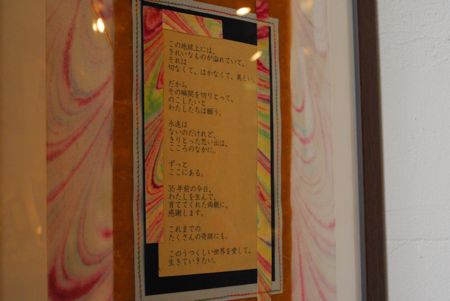 この地球上には、
きれいなものが溢れていて、
それは
切なくて、はかなくて、美しい。
だから
その瞬間を切りとって、
のこしたいと
わたしたちは願う。
永遠は
ないのだけれど、
きりとった思い出は、
こころのなかに。
ずっと
ここにある。
35年前の今日、
わたしを生んで、
育ててくれた両親に、
感謝します。
これまでの
たくさんの奇跡にも。
このうつくしい世界を愛して、
生きていきたい。